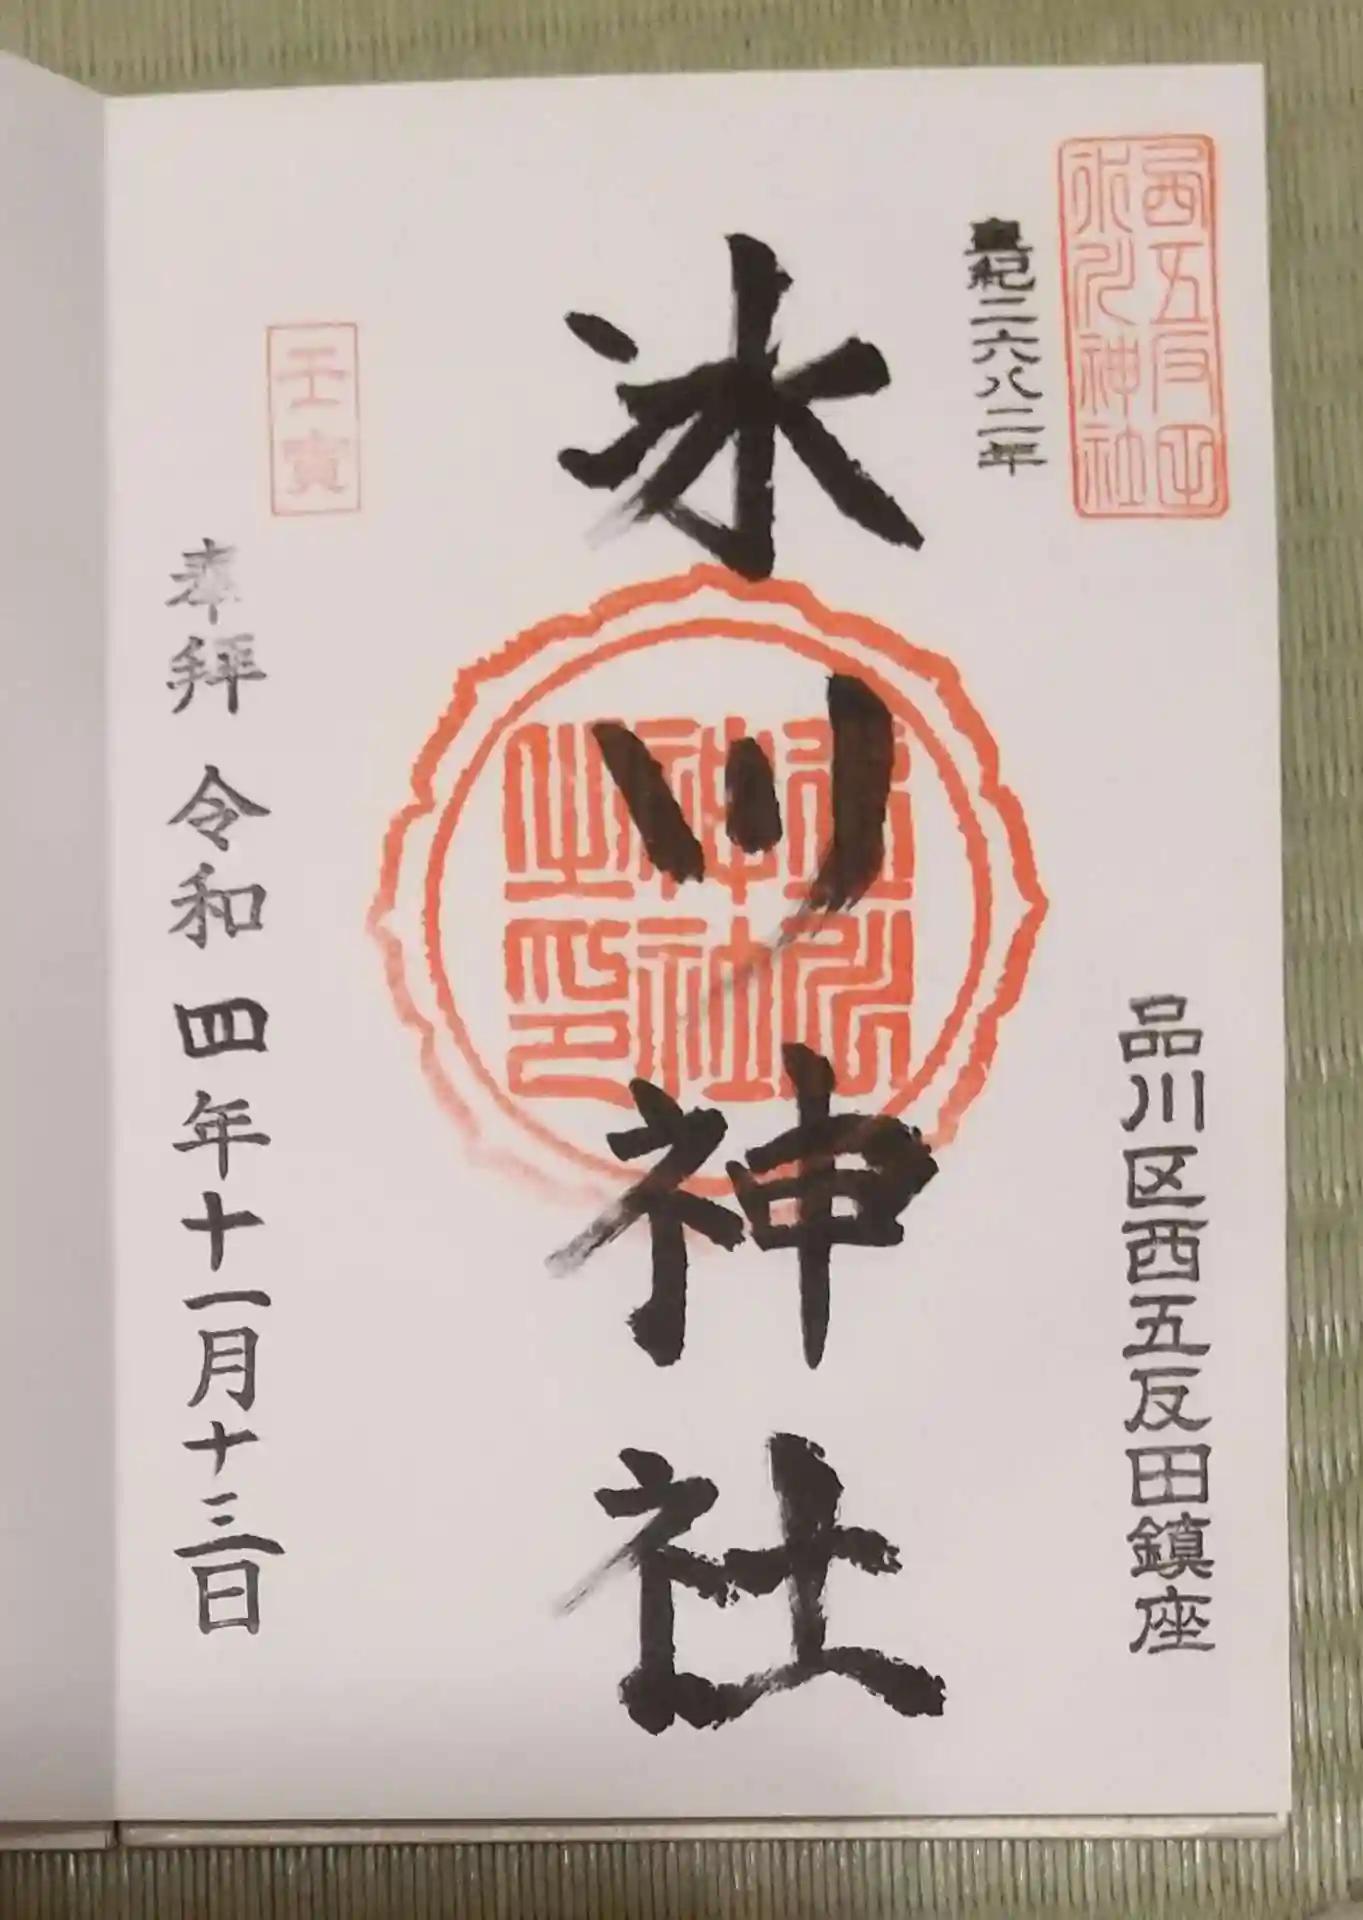 西五反田
氷川神社
皇紀二六八二年
品川区西五反田鎮座
氷川神社
氷川
神社
之印
壬寅
奉拝 令和四年十一月十三日